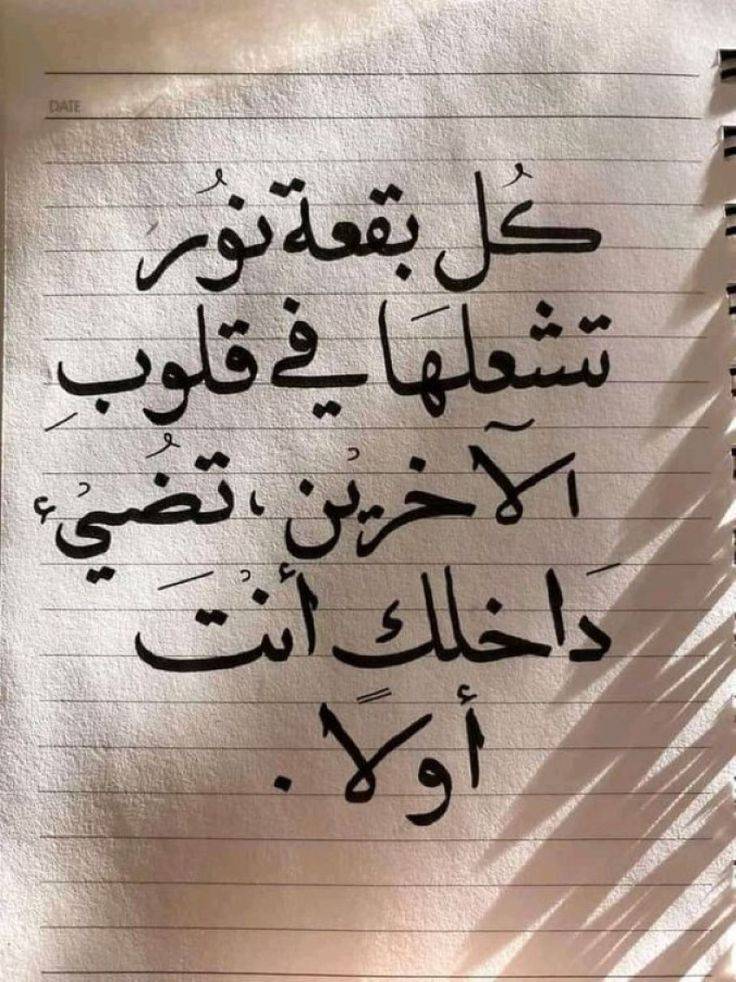 DATE
كُل بقعة نوُر
تشعلهَا في قلوبِ
الآخريْن ، تضُيْء
دَاخلك أنْتَ
أولاً .